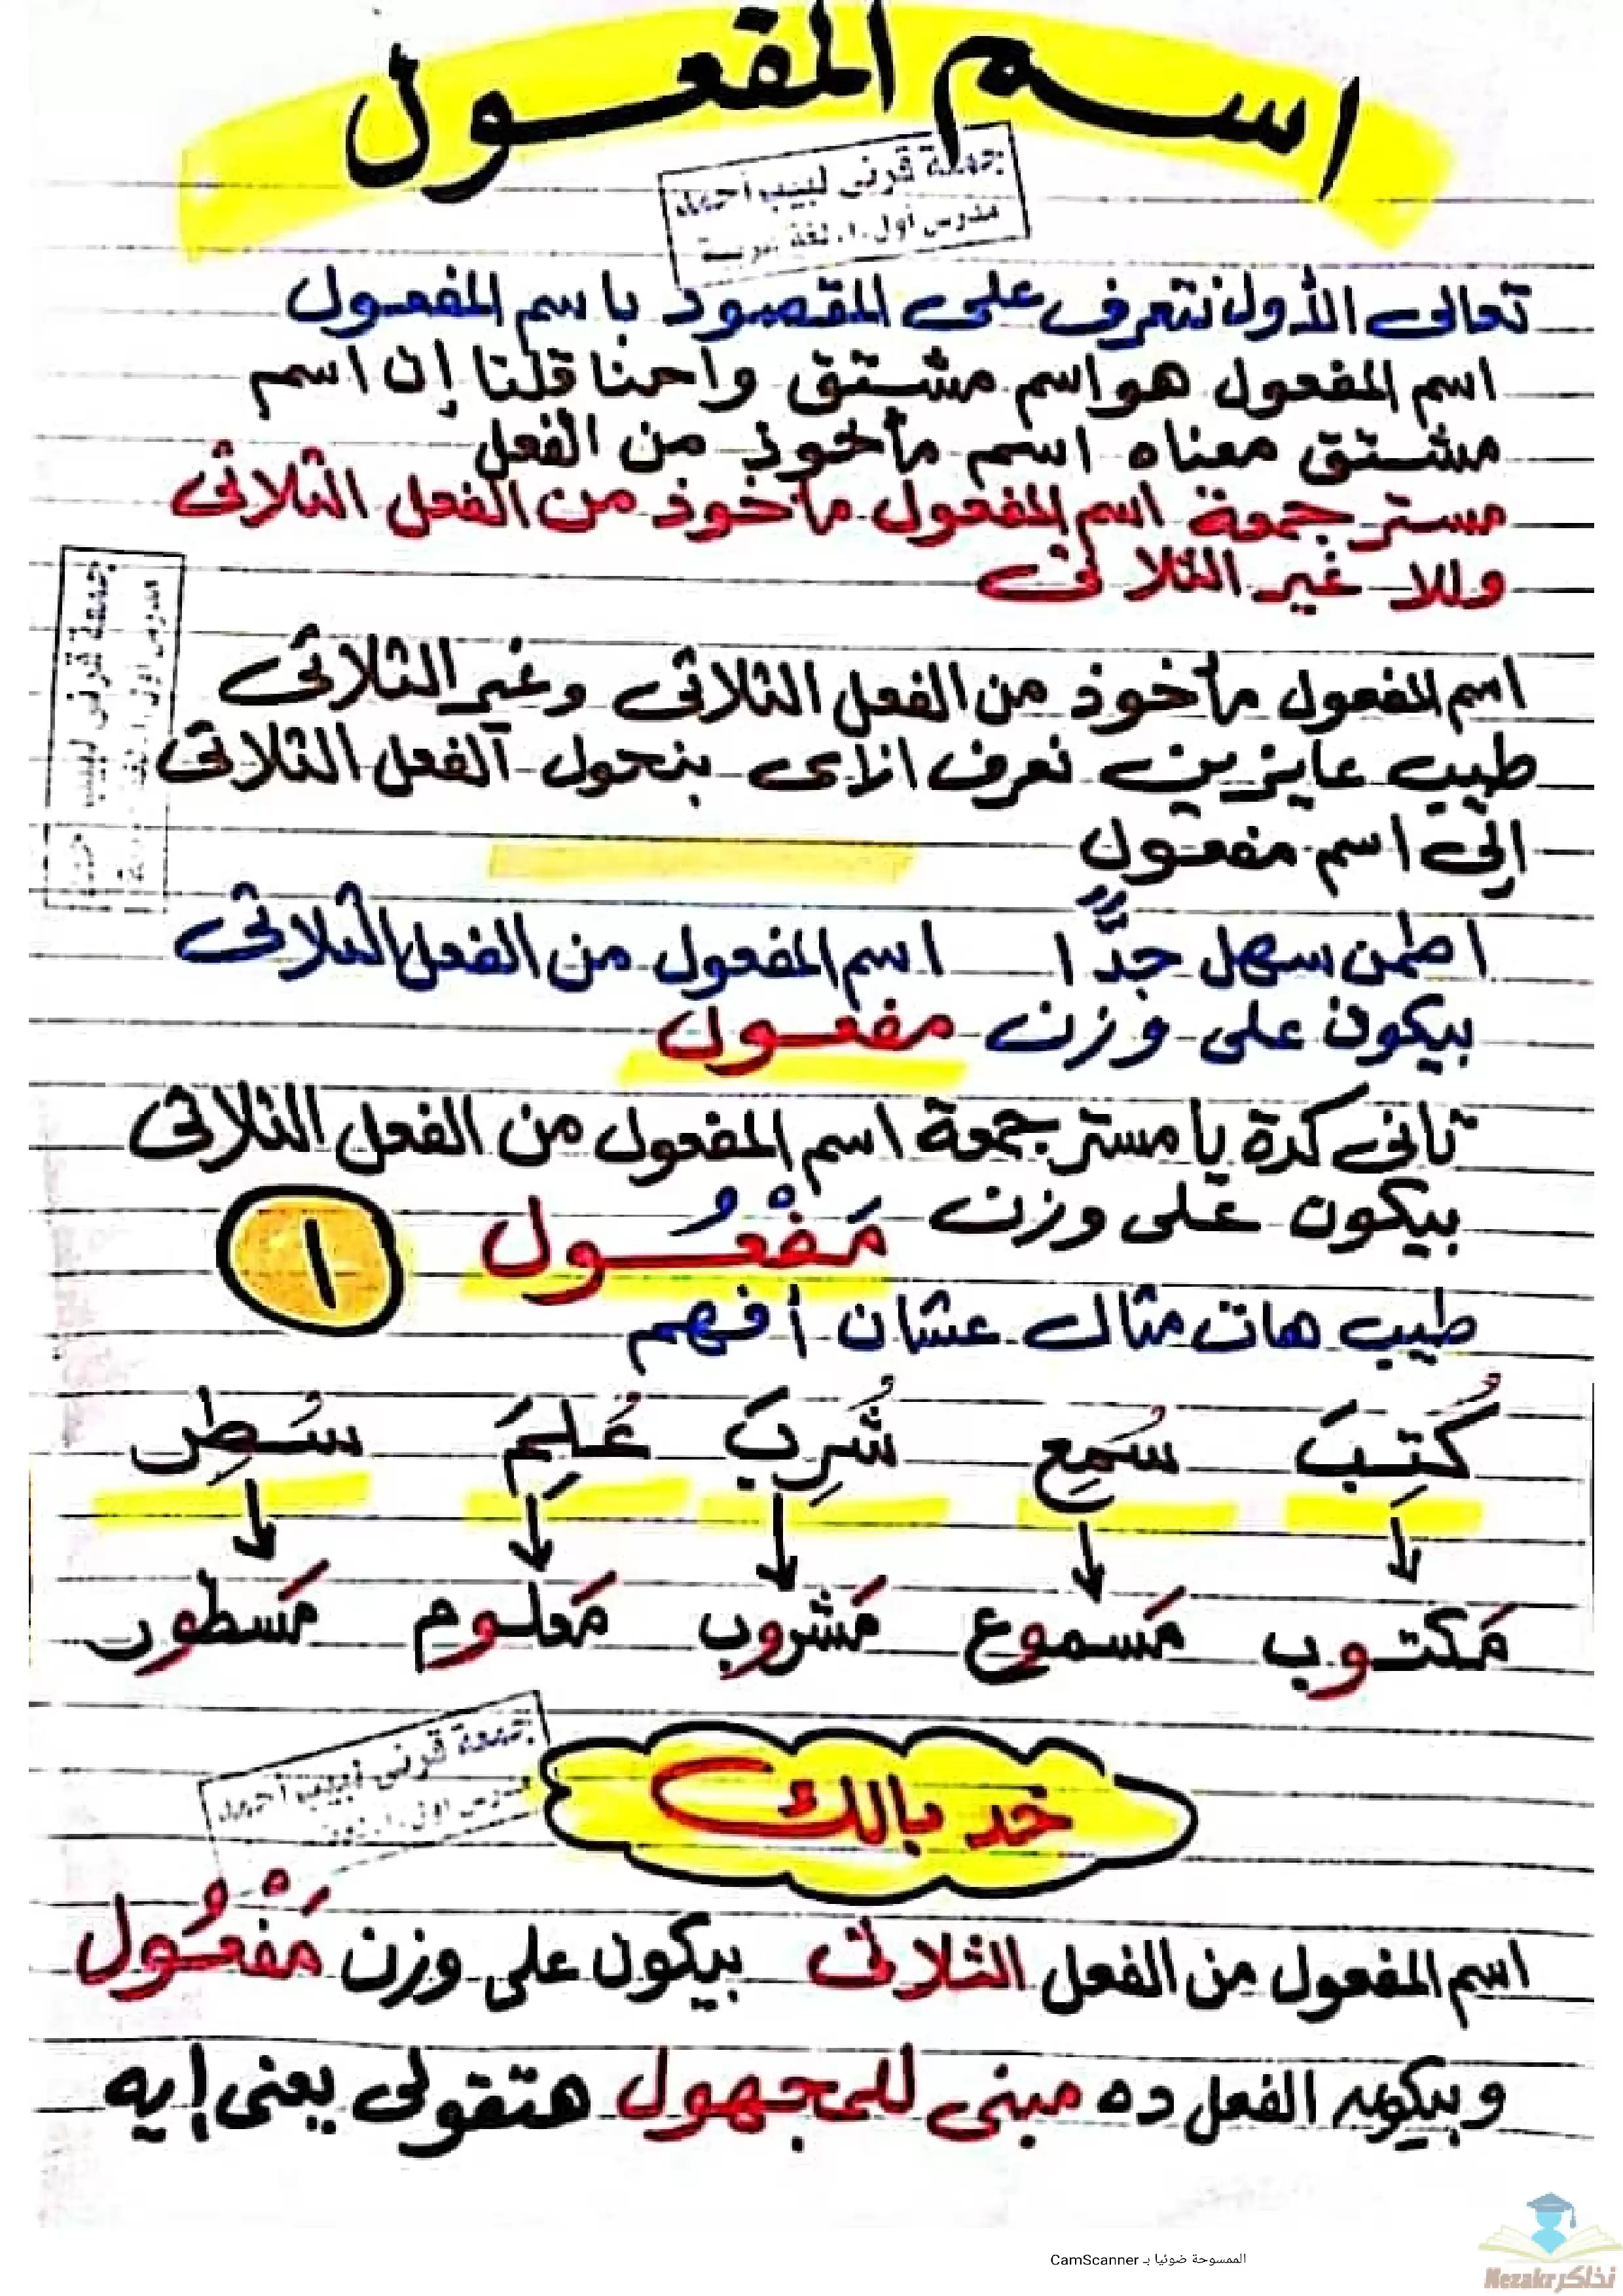 اسم المفعول
جمعة قرنى لبيب أحمد
مدرس أول أ. لغة عربية
تعالى الأول نتعرف على المقصود باسم المفعول
اسم المفعول هو اسم مشتق واحنا قلنا إن اسم
مشتق معناه اسم مأخوذ من الفعل
مستر جمعة اسم المفعول مأخوذ من الفعل الثلاثى
وللا غير الثلاثى
اسم المفعول مأخوذ من الفعل الثلاثى وغير الثلاثى
طيب عايزين نعرف ازاى بنحول الفعل الثلاثى
إلى اسم مفعول
اطمن سهل جدًّا اسم المفعول من الفعل الثلاثى
بيكون على وزن مفعول
تانى كدة يا مستر جمعة اسم المفعول من الفعل الثلاثى
بيكون على وزن مَفْعُول ١
طيب هات مثال عشان أفهم
كُتِبَ سُمِع شُرِبَ عُلِمَ سُطِر
مَكتوب مَسموع مَشروب مَعلوم مَسطور
جمعة قرنى لبيب أحمد
خد بالك
اسم المفعول من الفعل الثلاثى بيكون على وزن مَفْعُول
وبيكون الفعل ده مبنى للمجهول هتقولى يعنى إيه
الممسوحة ضوئيا بـ CamScanner
نذاكر Nezakr